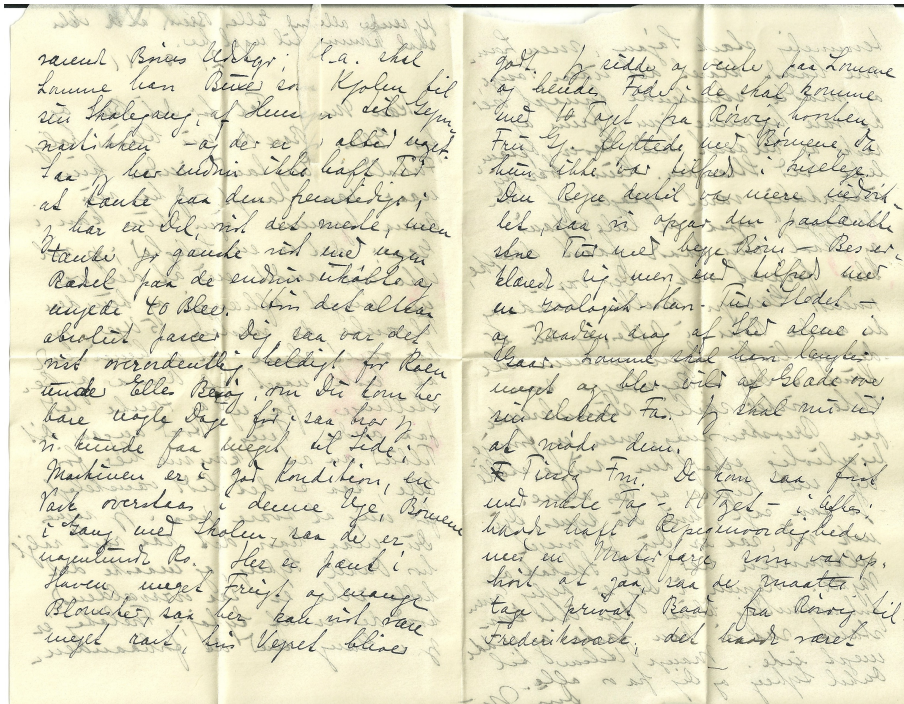 været Børnes Udstyr. Bl.a. skal
Lomme have Buxer so Kjolen til
sin Skolegang, af Hensyn til Gym-
nastikken – og der er altid noget.
Saa jeg har endnu ikke haft Tid
at tænke paa den fremtidige;
jeg har en Del, vist det meste, men
tænker jo ganske vist med nogen
Rædsel paa de endnu ukøbte og
usyede 40 Bleer. Om det altsaa
absolut passer Dig saa var det
vist overordentlig heldigt for Roen
under Elles Besøg, om Du kom her
bare nogle Dage før; saa tror jeg
vi kunde faa meget til Side;
Maskinen er i god Kondition, en
Vask overstaas i denne Uge, Børnene
i Gang med Skolen, saa de er
nogenlunde Ro. Her er pænt i
Haven, meget Frugt og mange
Blomster, saa her kan vist være
meget rart, hvis Vejret bliver
godt. Jeg sidder og venter paa Lomme
og hendes Fader; de skal komme
med 10 Toget fra Rørvig, hvorhen
Fru G. flyttede med Børnene, da
hun ikke var tilfreds i
Den Rejse dertil var mere
let, saa vi opgav den paatænkte
store Tur med begge Børn – Bes er
klarede sig mer end tilfreds med
en zoologisk Have-Tur i Stedet –
og Manden drog af Sted alene i
Gaar. Lomme skal have længtes
meget og blev vild af Glæde over
sin elskede Far. Jeg skal nu ud
at møde dem.
Tirsdg Fm. De kom saa først
med næste Tog – 11 Toget – i Aftes;
havde haft Rejsegenvordigheder
med en Motorfærge, som var op-
hørt at gaa, saa de maatte
tage privat Baad fra Rørvig til
Frederiksværk; det havde været